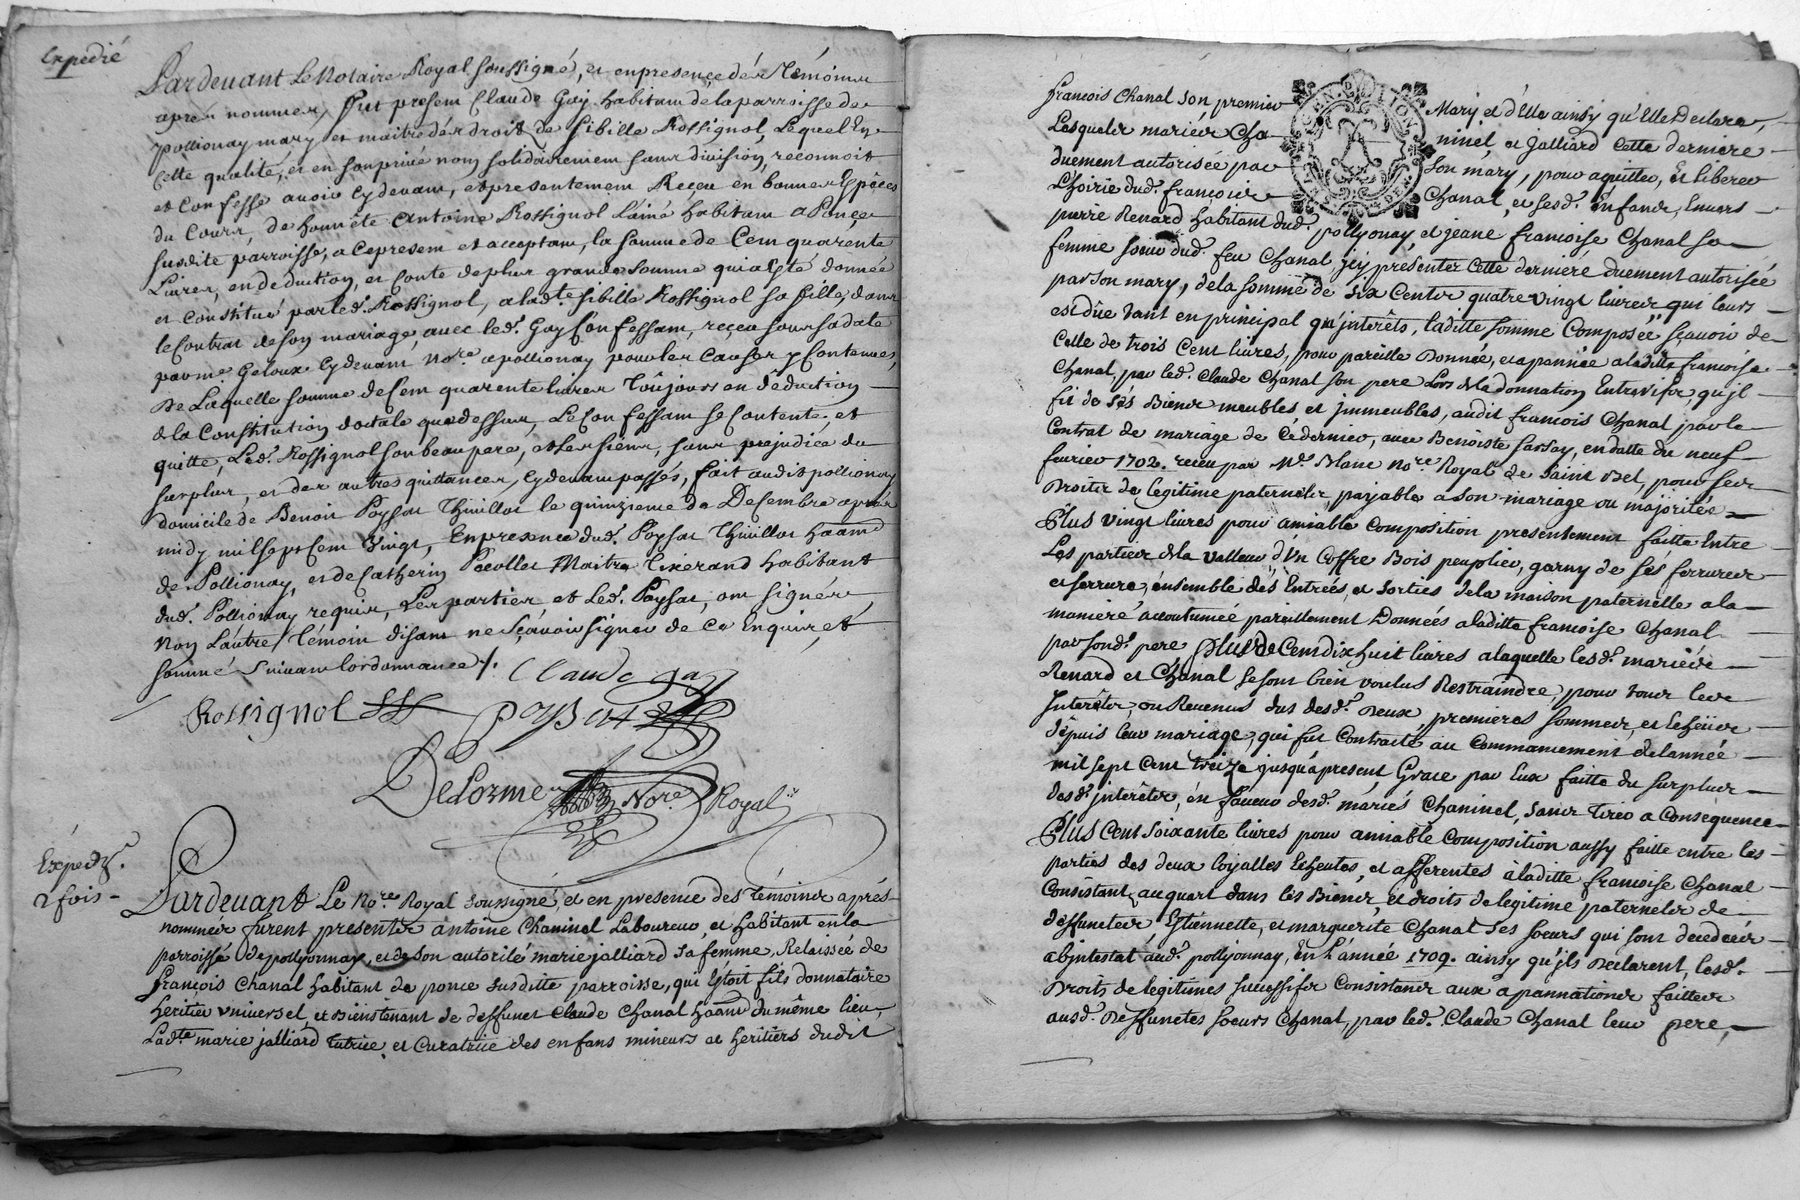 Expedié
Pardevant Le Notaire Royal soussigné, et en presence dés Témoins
aprés nommés, fut present Claude Gay habitant dé la parroisse de
pollionay mary et maitre dés droits de Sibille Rossignol, Lequel En
Cette qualité, et en son privé nom solidairement sans division, reconnoit
et Confesse avoir Cydevant, et presentement Reçeu en bonnes Espèces
du Cours, de honnête Antoine Rossignol L'ainé habitant a Ponçe
susdite parroisse, a ce present et acceptant, la somme de Cent quarente
Livres, en deduction, et Conte de plus grande somme qui a esté donnée
et Constitué par led. Rossignol, a lad.te Sibille Rossignol sa fille, dans
le Contrat de son mariage, avec led. Gay Confessant, reçeu sous sa date
par me Geloux Cydevant No.re a pollionay pour les Causes y Contenues,
De Laquelle somme de Cent quarente livres Toûjours en déduction
de la Constitution dotale que dessus, Le Confessant se Contente, et
quitte, Led. Rossignol son beau pere, et les siens, sans prejudice du
surplus, et des autres quittances, Cydevant passés, fait audit pollionay
domicile de Benoit Paysat Thuillot le quinzieme de Decembre aprés
midy mil sept Cent Vingt, En presence dud. Paysat Thuillot ha.ant
de Pollionay, et de Catherin Pacollet Maitre Tixerand habitant
dud. Pollionay requis, Les parties, et Led. Paysat, ont signés
Non L'autre Témoin disant ne sçavoir signer de Ce Enquis, et
sommé suivant l'ordonnance /.
Claude gay
Rossignol Paysat
Delorme No.re Royal
Expedié.
2 fois -
Pardevant Le No.re Royal soussigné, et en presence des Témoins aprés
nommés furent presents antoine Chaninel Laboureur, et habitant en la
parroisse de pollyonnay, et de son autorité marie jalliard sa femme, Relaissée de
François Chanal habitant de ponce susditte parroisse, qui Estoit fils donnataire
heritier universel et Bientenant de deffunct Claude Chanal ha.ant du même lieu,
Lad.te marie jalliard tutrice, et Curatrice des enfans mineurs et héritiers dudit
françois Chanal son premier Mary et d'Elle ainsy qu'Elle Declare,
Lesquels mariés Chaninel, et Jalliard Cette derniere
duement autorisée par Son mary, pour aquitter, et liberer
L'hoirie dud. françois Chanal, et sesd. Enfans, Envers
pierre Renard habitant dud. pollyonay, et jeane françoise Chanal sa
femme soeur dud. feu Chanal jcy presents Cette derniere duement autorisée
par son mary, de la somme de Six Cents quatre vingt livres qui leurs
est dûe tant en principal qu'interêts, laditte somme Composée sçavoir de
Celle de trois Cent livres, pour pareille Donnée, et apannée a laditte françoise
Chanal, par led. Claude Chanal son pere Lors de la donnation Entrevifs, qu'jl
fit de sés Biens meubles et jmmeubles, audit françois Chanal par le
Contrat de mariage de Cedernier, avec Benoiste Sarsay, en datte du neuf
fevrier 1702. receu par M.e Blanc No.re Royal de Saint Bel, pour ses
Droits de legitime paternels, payable a son mariage ou majorité
Plus vingt livres pour amiable Composition presentement faitte Entre
Les parties de la valleur d'Vn Coffre Bois peuplier, garny de sés ferrures
et serrure, ensemble des Entreés, et sorties de la maison paternelle a la
maniere accoutumée pareillement Données a laditte françoise Chanal
par sond. pere Plus de Cent dix huit livres a laquelle lesd. mariés
Renard et Chanal se sont bien voulus Restraindre, pour tous les
Interêts, ou Revenus dus desd. Deux premieres sommes, et Eschus
dépuis leur mariage, qui fut Contracté au Commancement de l'année
mil sept Cent treize jusqu'apresent, Grace par Eux faitte du surplus
desd. jnterêts, en faveur desd. mariés Chaninel, sans Tirer a Consequence
Plus Cent Soixante livres pour amiable Composition aussy faitte entre les
parties des deux loyalles Escheutes, et afferentes à laditte françoise Chanal
Consistant au quart dans lés Biens, et droits de legitime paternels de
deffunctes Estiennette, et marguerite Chanal ses soeurs qui sont decedeés
abjntestat aud. pollyonnay, En l'année 1709. ainsy qu'jls Declarent, lesd.
Droits de legitimes successifs Consistans aux apannations faittes
ausd. Deffunctes soeurs Chanal, par led. Claude Chanal leur pere,
GEN. D. LION